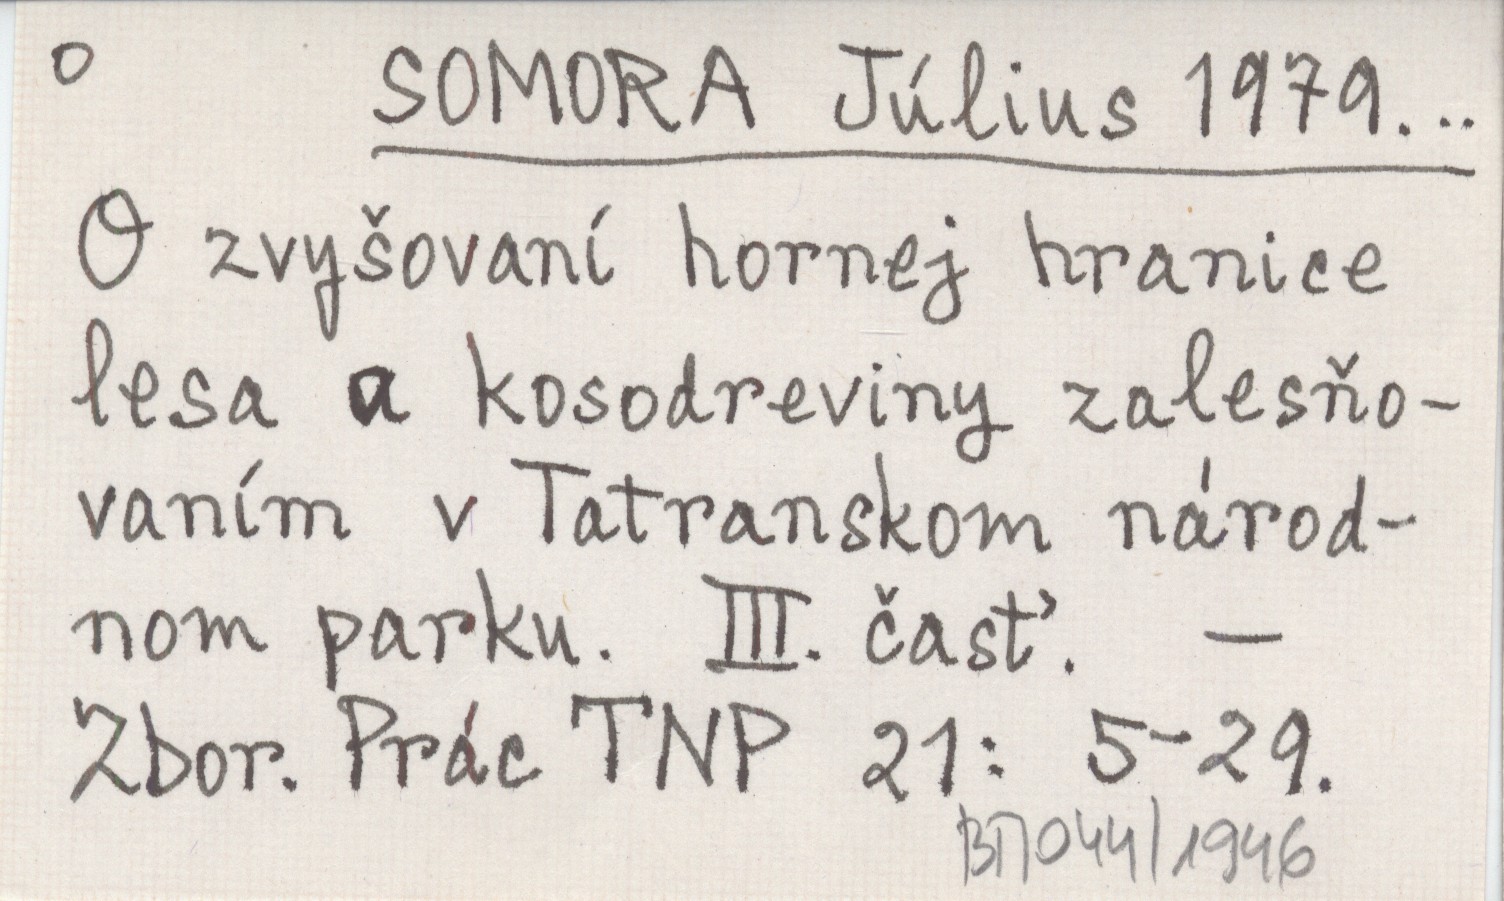 O SOMORA Július 1979...
O zvyšovaní hornej hranice
lesa a kosodreviny zalesňo-
vaním v Tatranskom národ-
nom parku. III. časť. —
Zbor. Prác TNP 21: 5-29.
044/1946